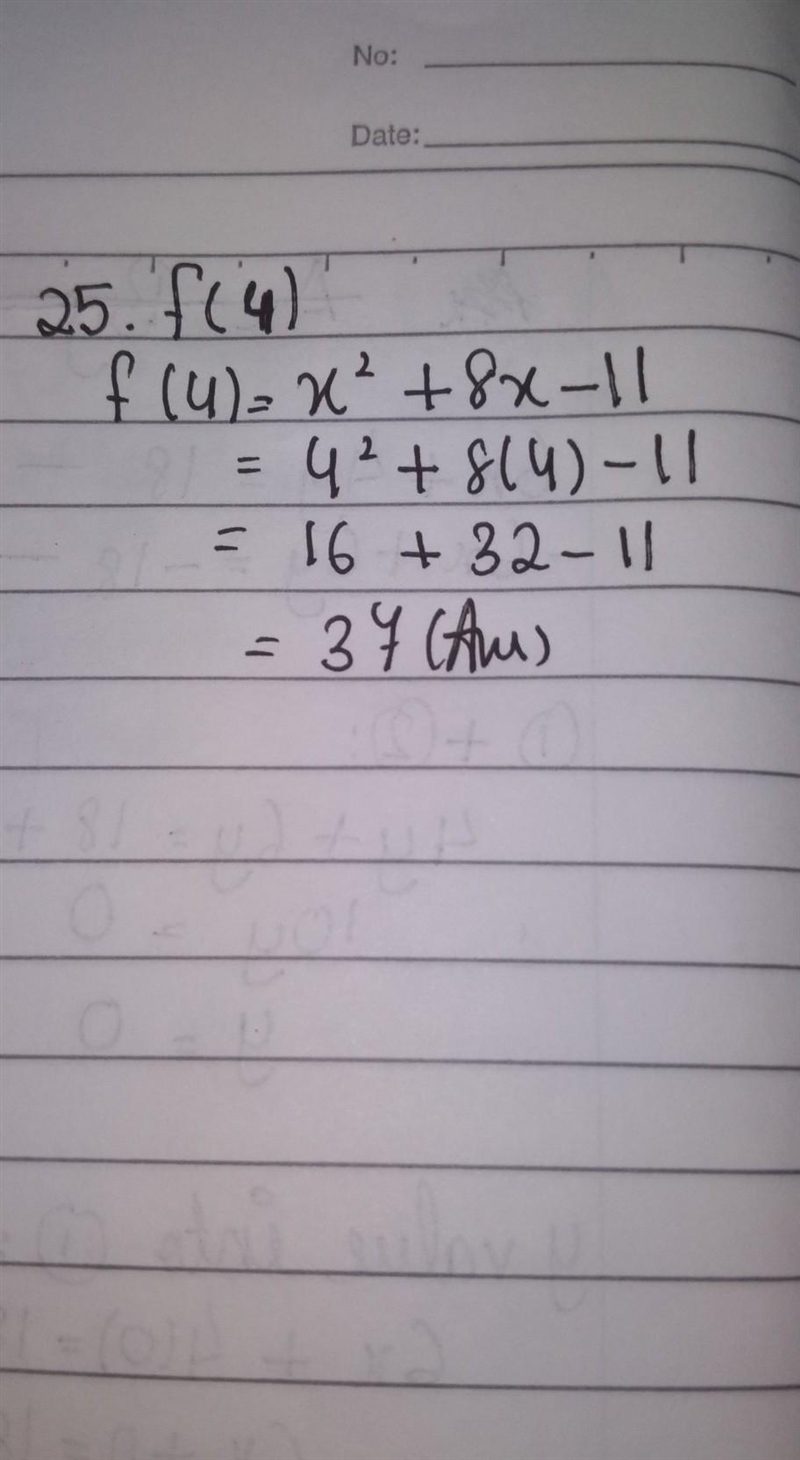 No:
Date:
25. f(4)
f(4) = x² + 8x - 11
= 4² + 8(4) - 11
= 16 + 32 - 11
= 37 (Ans)